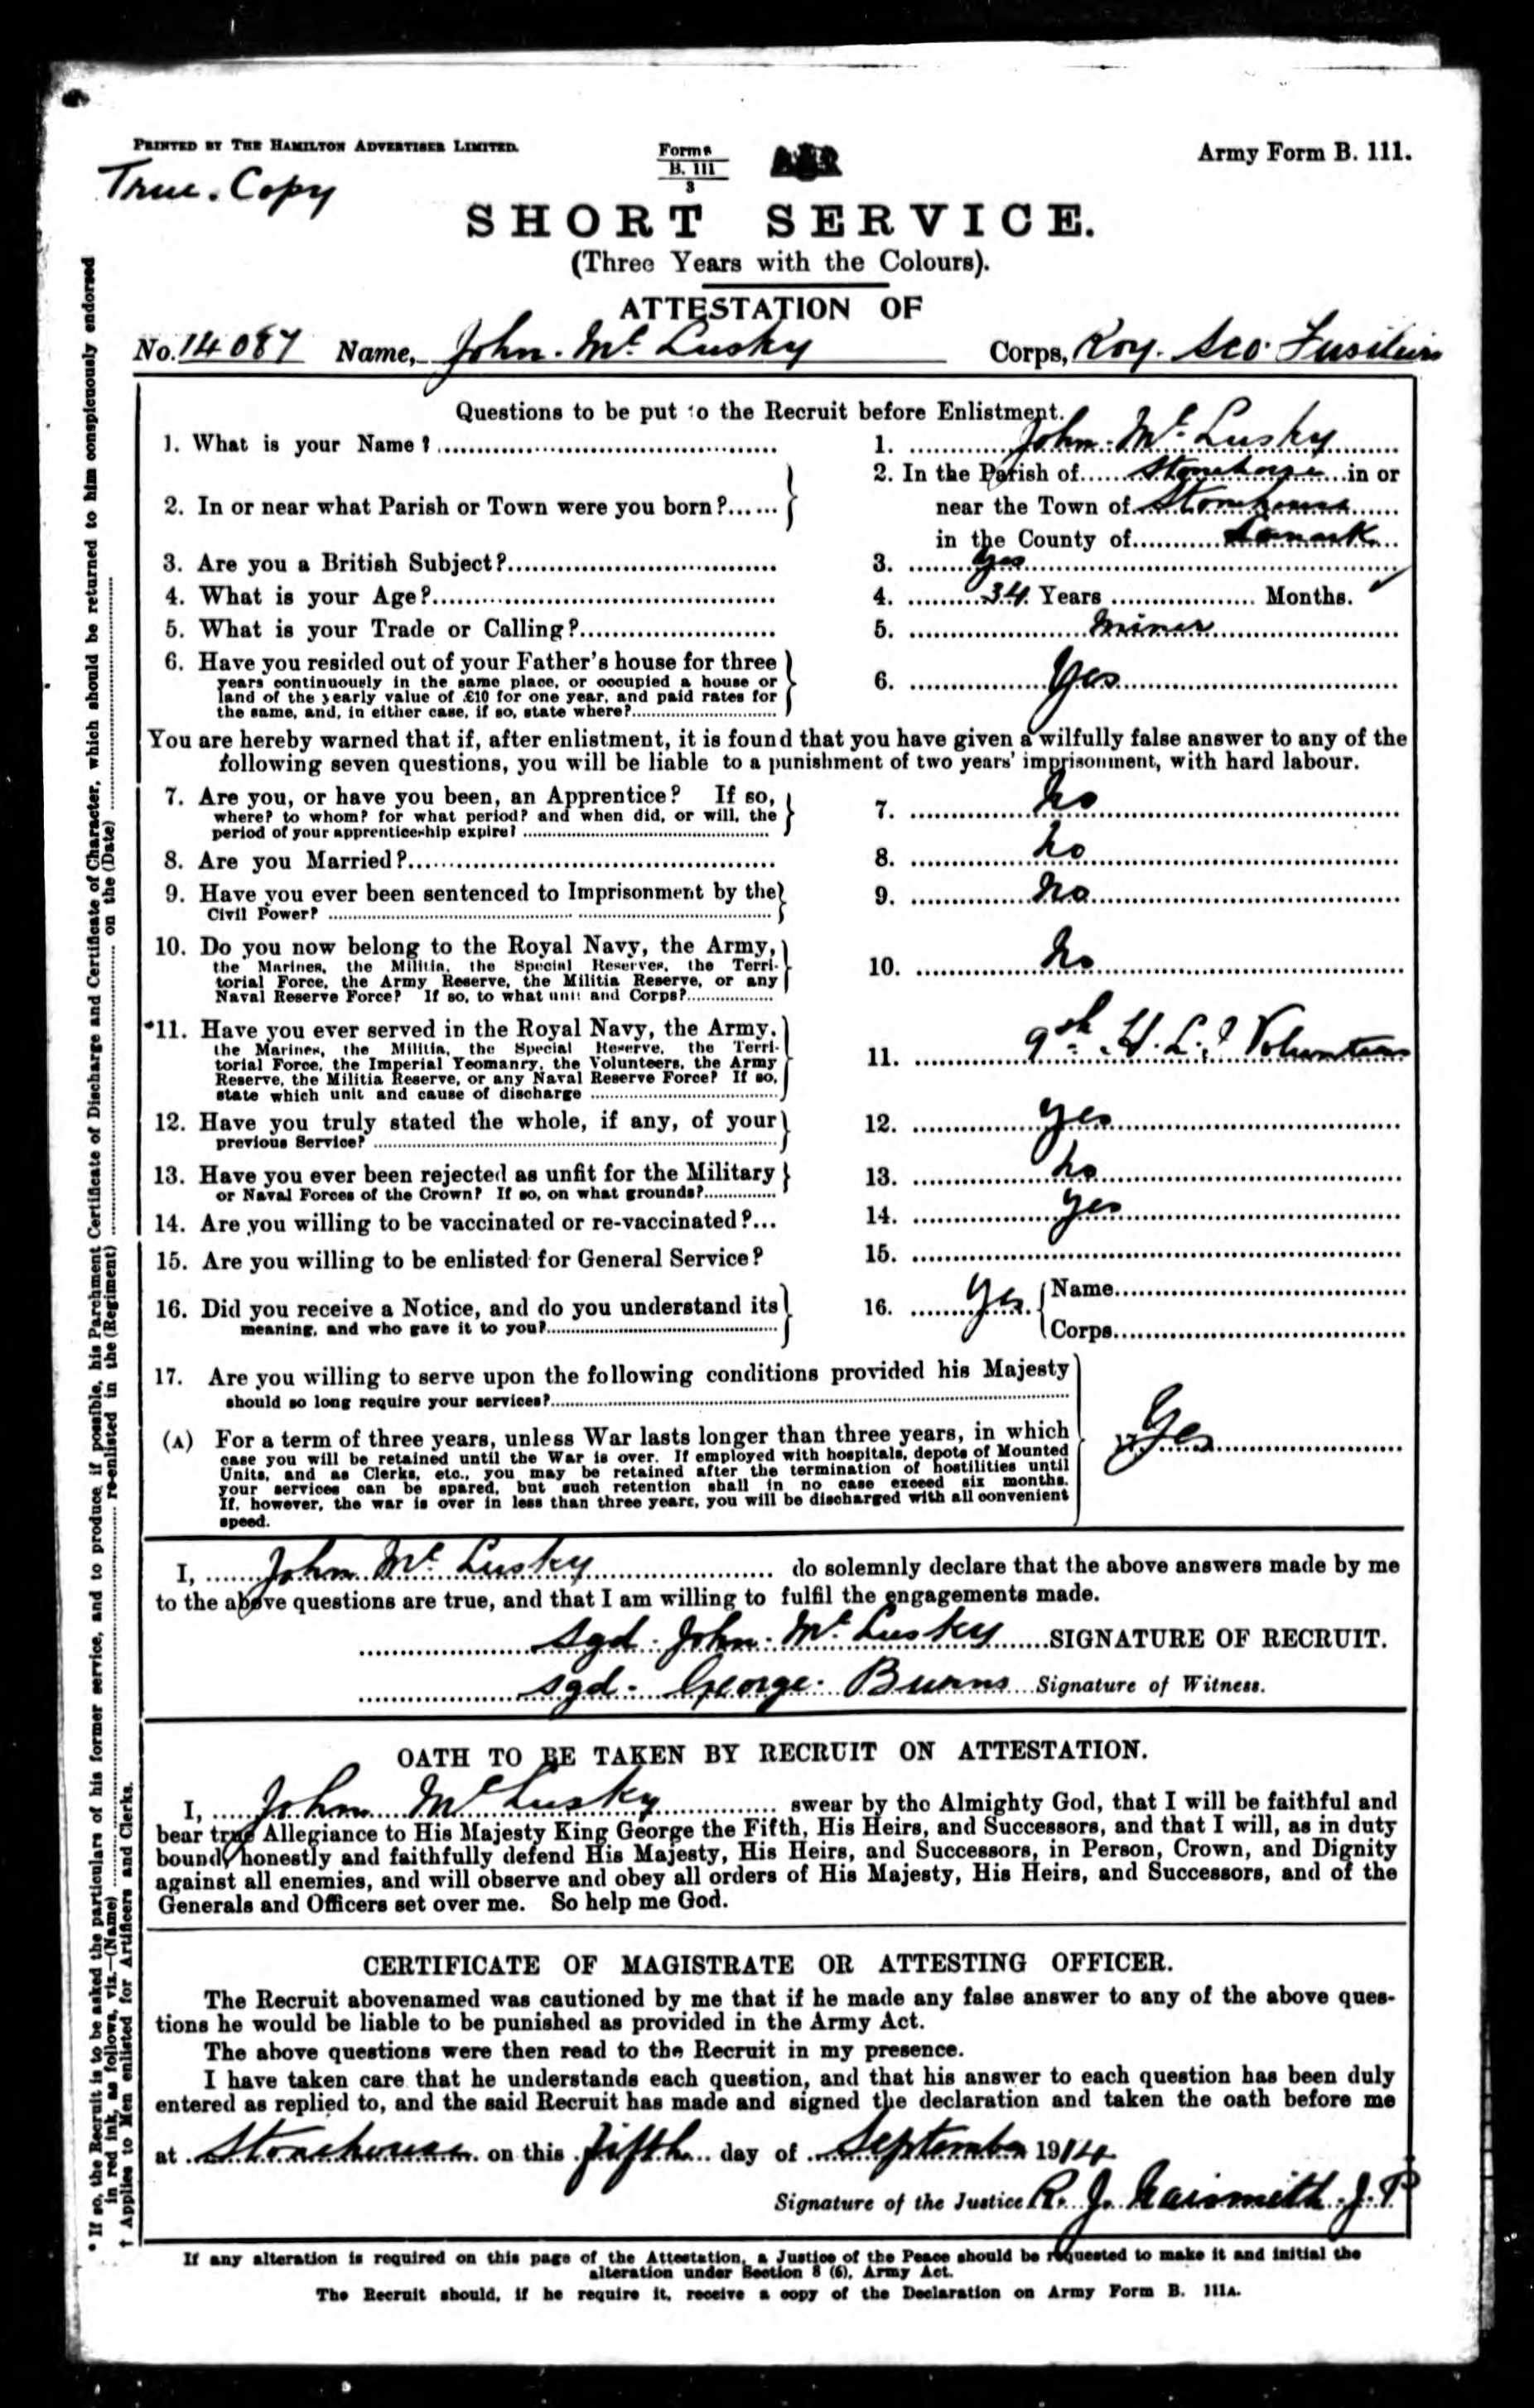 PRINTED BY THE HAMILTON ADVERTISER LIMITED.
Forms
B. 111
3
Army Form B. 111.
True. Copy
SHORT SERVICE.
(Three Years with the Colours).
ATTESTATION OF
No. 14087 Name, John. Mc Lusky Corps, Roy. Sco. Fusiliers
Questions to be put to the Recruit before Enlistment.
1. What is your Name? 1. John. Mc Lusky
2. In or near what Parish or Town were you born? 2. In the Parish of Stonehouse in or
near the Town of Stonehouse
in the County of Lanark
3. Are you a British Subject? 3. Yes
4. What is your Age? 4. 34 Years Months.
5. What is your Trade or Calling? 5. Miner
6. Have you resided out of your Father's house for three
years continuously in the same place, or occupied a house or
land of the yearly value of £10 for one year, and paid rates for
the same, and, in either case, if so, state where? 6. Yes
You are hereby warned that if, after enlistment, it is found that you have given a wilfully false answer to any of the
following seven questions, you will be liable to a punishment of two years' imprisonment, with hard labour.
7. Are you, or have you been, an Apprentice? If so,
where? to whom? for what period? and when did, or will, the
period of your apprenticeship expire? 7. No
8. Are you Married? 8. No
9. Have you ever been sentenced to Imprisonment by the
Civil Power? 9. No
10. Do you now belong to the Royal Navy, the Army,
the Marines, the Militia, the Special Reserves, the Terri-
torial Force, the Army Reserve, the Militia Reserve, or any
Naval Reserve Force? If so, to what unit and Corps? 10. No
*11. Have you ever served in the Royal Navy, the Army.
the Marines, the Militia, the Special Reserve, the Terri-
torial Force, the Imperial Yeomanry, the Volunteers, the Army
Reserve, the Militia Reserve, or any Naval Reserve Force? If so,
state which unit and cause of discharge 11. 9th H.L.I Volunteers
12. Have you truly stated the whole, if any, of your
previous Service? 12. Yes
13. Have you ever been rejected as unfit for the Military
or Naval Forces of the Crown? If so, on what grounds? 13. No
14. Are you willing to be vaccinated or re-vaccinated?... 14. Yes
15. Are you willing to be enlisted for General Service? 15.
16. Did you receive a Notice, and do you understand its
meaning, and who gave it to you? 16. Yes Name
Corps
17. Are you willing to serve upon the following conditions provided his Majesty
should so long require your services?
(A) For a term of three years, unless War lasts longer than three years, in which
case you will be retained until the War is over. If employed with hospitals, depots of Mounted
Units, and as Clerks, etc., you may be retained after the termination of hostilities until
your services can be spared, but such retention shall in no case exceed six months.
If, however, the war is over in less than three years, you will be discharged with all convenient
speed. 17 Yes
I, John Mc Lusky do solemnly declare that the above answers made by me
to the above questions are true, and that I am willing to fulfil the engagements made.
Sgd. John. Mc Lusky SIGNATURE OF RECRUIT.
Sgd. George. Burns Signature of Witness.
OATH TO BE TAKEN BY RECRUIT ON ATTESTATION.
I, John Mc Lusky swear by the Almighty God, that I will be faithful and
bear true Allegiance to His Majesty King George the Fifth, His Heirs, and Successors, and that I will, as in duty
bound, honestly and faithfully defend His Majesty, His Heirs, and Successors, in Person, Crown, and Dignity
against all enemies, and will observe and obey all orders of His Majesty, His Heirs, and Successors, and of the
Generals and Officers set over me. So help me God.
CERTIFICATE OF MAGISTRATE OR ATTESTING OFFICER.
The Recruit abovenamed was cautioned by me that if he made any false answer to any of the above ques-
tions he would be liable to be punished as provided in the Army Act.
The above questions were then read to the Recruit in my presence.
I have taken care that he understands each question, and that his answer to each question has been duly
entered as replied to, and the said Recruit has made and signed the declaration and taken the oath before me
at Stonehouse on this fifth day of September 1914
Signature of the Justice R. J. Naismith. J. P
If any alteration is required on this page of the Attestation, a Justice of the Peace should be requested to make it and initial the
alteration under Section 8 (6), Army Act.
The Recruit should, if he require it, receive a copy of the Declaration on Army Form B. 111A.
* If so, the Recruit is to be asked the particulars of his former service, and to produce, if possible, his Parchment Certificate of Discharge and Certificate of Character, which should be returned to him conspicuously endorsed
in red ink, as follows, viz.—(Name) re-enlisted in the (Regiment) on the (Date)
† Applies to Men enlisted for Artificers and Clerks.